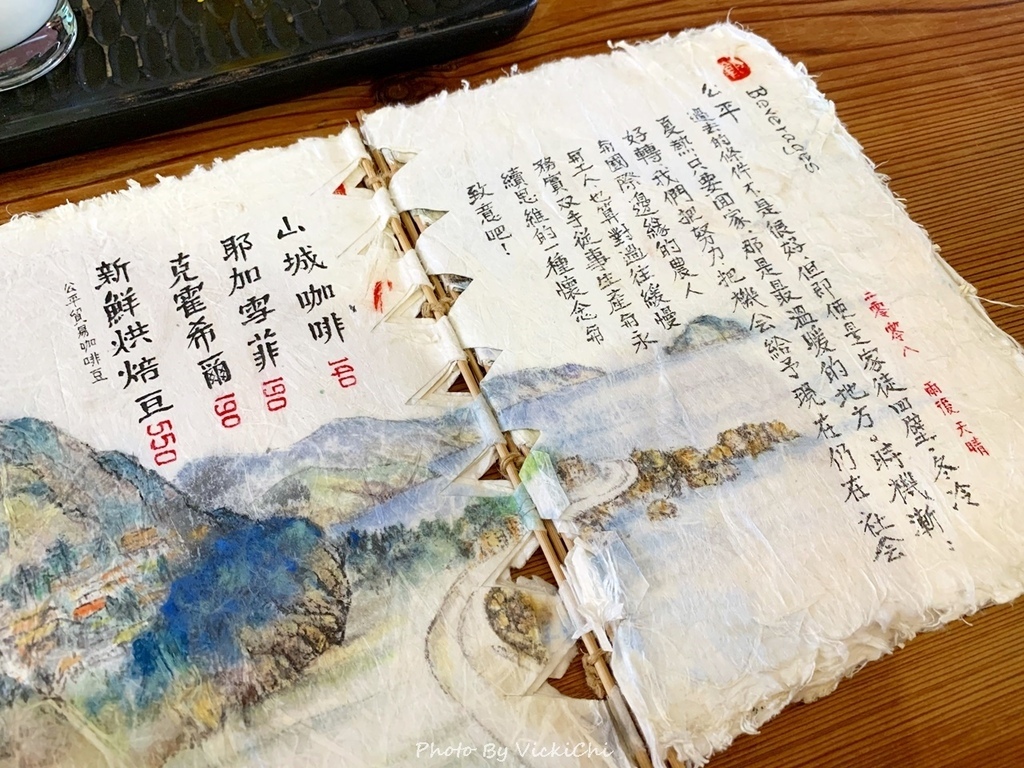 Beverages
二零零八 雨後天晴
公平
過去的條件不是很好,但即便是家徒四壁.冬冷
夏熱.只要回家.那是最溫暖的地方。時機漸:
好轉.我們都努力.把機會給予現在仍在社會
与國際邊緣的農人
与工人也算對過往緩慢
務實双手從事生產与永
續思維的一種懷念与
致意吧!
山城咖啡 140
耶加雪菲 190
克霍希爾 190
新鮮烘焙豆 550
公平貿易咖啡豆
Photo By VickiChi